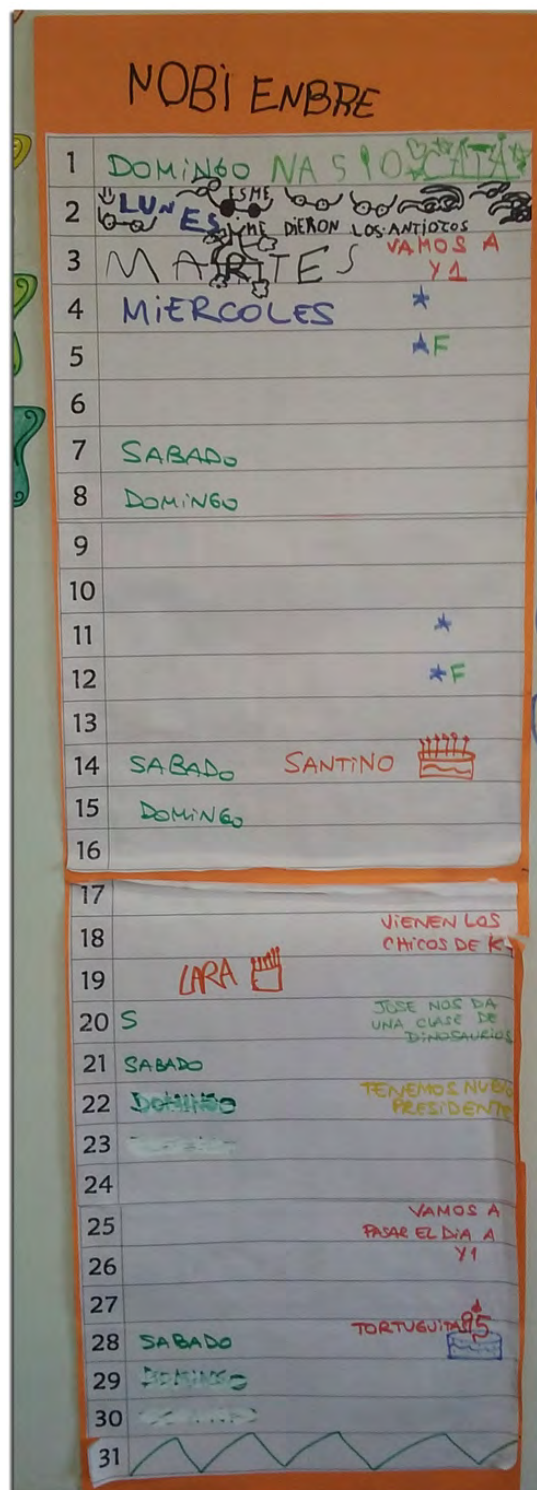 NOBIENBRE
1 DOMINGO NASIO CATA
2 LUNES ESME
ME DIERON LOS ANTIOJOS
3 MARTES VAMOS A
Y1
4 MIERCOLES
5 F
6
7 SABADO
8 DOMINGO
9
10
11
12 F
13
14 SABADO SANTINO
15 DOMINGO
16
17
18 VIENEN LOS
CHICOS DE
19 LARA
20 S JOSE NOS DA
UNA CLASE DE
DINOSAURIOS
21 SABADO
22 DOMINGO TENEMOS NUEVO
PRESIDENTE
23
24
25 VAMOS A
PASAR EL DIA A
Y1
26
27
28 SABADO TORTUGUITAS 95
29 DOMINGO
30
31